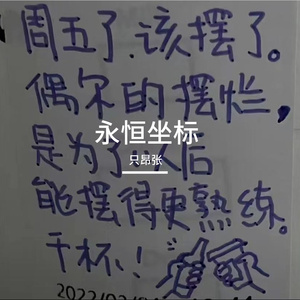 周五了.该摆了。
偶尔的摆烂，
永恒坐标
是为了以后
只昂张
能摆得更熟练。
干杯！